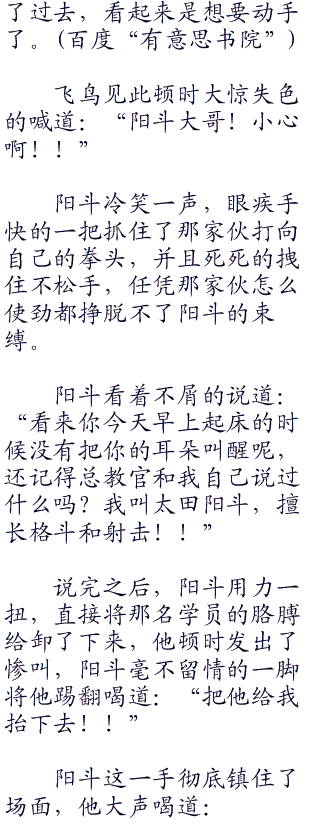 了过去，看起来是想要动手
了。(百度“有意思书院”)
飞鸟见此顿时大惊失色
的喊道：“阳斗大哥！小心
啊！！”
阳斗冷笑一声，眼疾手
快的一把抓住了那家伙打向
自己的拳头，并且死死的拽
住不松手，任凭那家伙怎么
使劲都挣脱不了阳斗的束
缚。
阳斗看着不屑的说道：
“看来你今天早上起床的时
候没有把你的耳朵叫醒呢，
还记得总教官和我自己说过
什么吗？我叫太田阳斗，擅
长格斗和射击！！”
说完之后，阳斗用力一
扭，直接将那名学员的胳膊
给卸了下来，他顿时发出了
惨叫，阳斗毫不留情的一脚
将他踢翻喝道：“把他给我
抬下去！！”
阳斗这一手彻底镇住了
场面，他大声喝道：